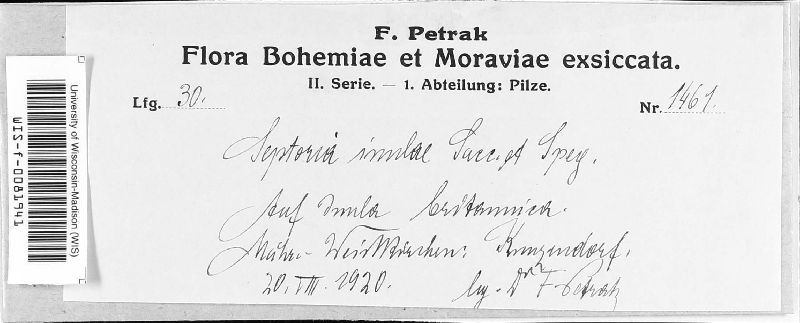 F. Petrak
Flora Bohemiae et Moraviae exsiccata.
II. Serie. — 1. Abteilung: Pilze.
Lfg. 30.
Nr. 1461.
Septoria inulae Sacc. et Speg.
Auf Inula britannica.
Mähr.-Weisskirchen: Kunzendorf.
20. VIII. 1920.
lg. Dr F. Petrak
University of Wisconsin-Madison (WIS)
WIS-f-0081941